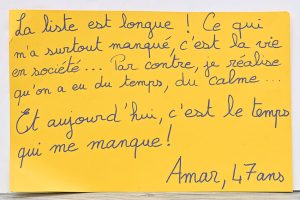 La liste est longue ! Ce qui
m'a surtout manqué, c'est la vie
en société... Par contre, je réalise
qu'on a eu du temps, du calme...
Et aujourd'hui, c'est le temps
qui me manque !
Amar, 47 ans